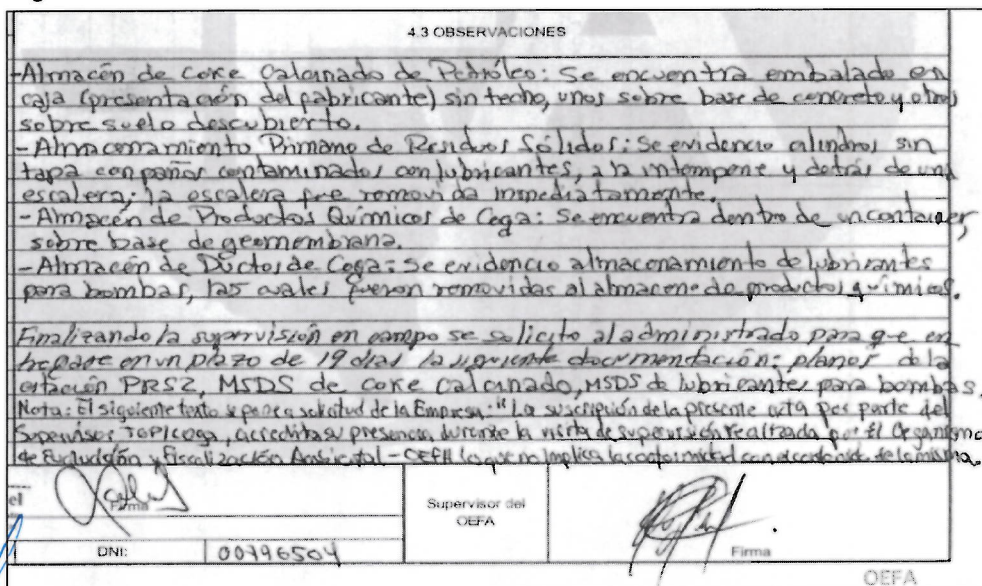 4.3 OBSERVACIONES
-Almacén de Coke Calcinado de Petróleo: Se encuentra embalado en
caja (presentación del fabricante) sin techo, unos sobre base de concreto y otros
sobre suelo descubierto.
-Almacenamiento Primario de Residuos Sólidos: Se evidencio cilindros sin
tapa con paños contaminados con lubricantes, a la intemperie y detrás de una
escalera; la escalera fue removida inmediatamente.
-Almacén de Productos Químicos de Coga: Se encuentra dentro de un container,
sobre base de geomembrana.
-Almacén de Ductos de Coga: se evidencio almacenamiento de lubricantes
para bombas, las cuales fueron removidas al almacene de productos químicos.
Finalizando la supervisión en campo se solicito al administrado para que en
un plazo de 19 dias la siguiente documentación: planos de la
estación PRS2, MSDS de coke calcinado, MSDS de lubricantes para bombas.
Nota: El siguiente texto se pone a solicitud de la Empresa: "La suscripción de la presente acta por parte del
Supervisor TGP/Coga, acredita su presencia durante la visita de supervisión realizada por el Organismo
de Evaluación y Fiscalización Ambiental - OEFA lo que no implica la conformidad con el contenido de la misma.
el
Firma
Supervisor del
OEFA
Firma
DNI: 00796504
OEFA